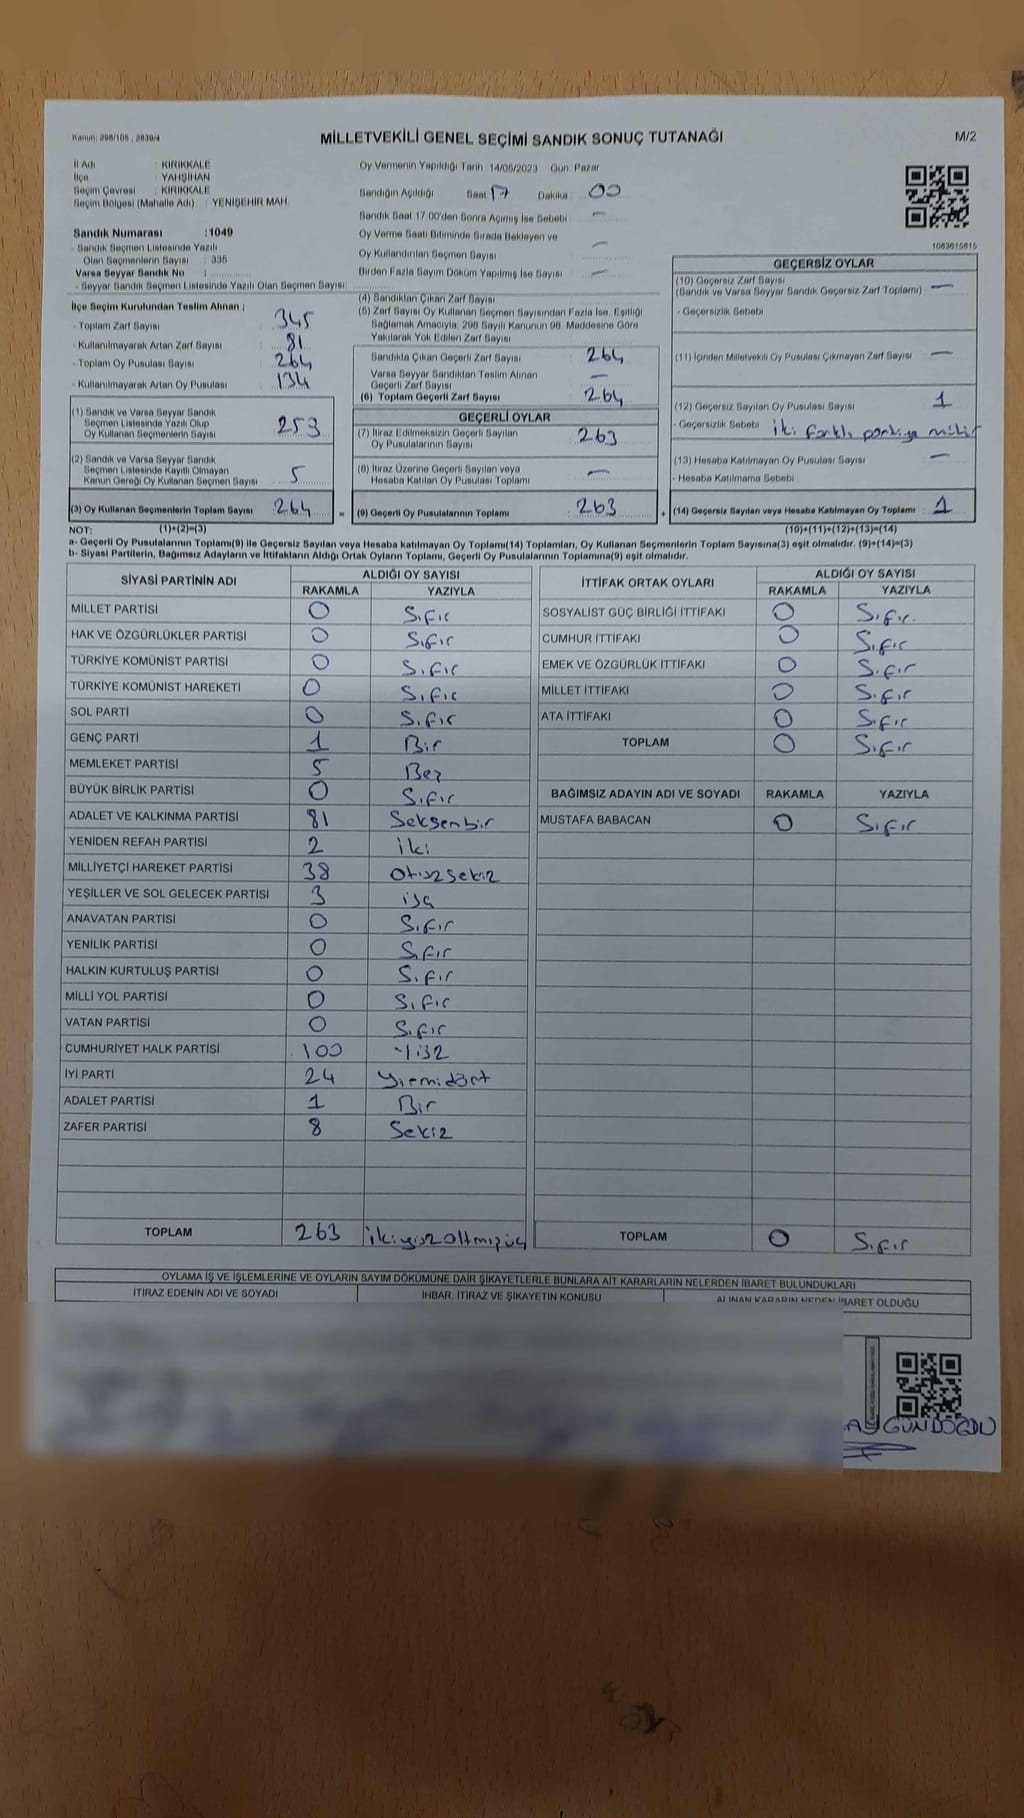 Kanun: 298/105 , 2839/4
MİLLETVEKİLİ GENEL SEÇİMİ SANDIK SONUÇ TUTANAĞI
M/2
İl Adı : KIRIKKALE
İlçe : YAHŞİHAN
Seçim Çevresi : KIRIKKALE
Seçim Bölgesi (Mahalle Adı) : YENİŞEHİR MAH.
Sandık Numarası : 1049
- Sandık Seçmen Listesinde Yazılı
Olan Seçmenlerin Sayısı : 335
Varsa Seyyar Sandık No :
- Seyyar Sandık Seçmen Listesinde Yazılı Olan Seçmen Sayısı:
Oy Vermenin Yapıldığı Tarih : 14/05/2023 Gün: Pazar
Sandığın Açıldığı Saat : 17 Dakika : 00
Sandık Saat 17:00'den Sonra Açılmış İse Sebebi : —
Oy Verme Saati Bitiminde Sırada Bekleyen ve
Oy Kullandırılan Seçmen Sayısı —
Birden Fazla Sayım Döküm Yapılmış İse Sayısı : —
1063615615
İlçe Seçim Kurulundan Teslim Alınan ;
- Toplam Zarf Sayısı : 345
- Kullanılmayarak Artan Zarf Sayısı : 81
- Toplam Oy Pusulası Sayısı : 264
- Kullanılmayarak Artan Oy Pusulası : 134
(1) Sandık ve Varsa Seyyar Sandık
Seçmen Listesinde Yazılı Olup
Oy Kullanan Seçmenlerin Sayısı 253
(2) Sandık ve Varsa Seyyar Sandık
Seçmen Listesinde Kayıtlı Olmayan
Kanun Gereği Oy Kullanan Seçmen Sayısı 5
(3) Oy Kullanan Seçmenlerin Toplam Sayısı 264
(4) Sandıktan Çıkan Zarf Sayısı
(5) Zarf Sayısı Oy Kullanan Seçmen Sayısından Fazla İse, Eşitliği
Sağlamak Amacıyla, 298 Sayılı Kanunun 98. Maddesine Göre
Yakılarak Yok Edilen Zarf Sayısı
Sandıkta Çıkan Geçerli Zarf Sayısı 264
Varsa Seyyar Sandıktan Teslim Alınan
Geçerli Zarf Sayısı —
(6) Toplam Geçerli Zarf Sayısı 264
GEÇERLİ OYLAR
(7) İtiraz Edilmeksizin Geçerli Sayılan
Oy Pusulalarının Sayısı 263
(8) İtiraz Üzerine Geçerli Sayılan veya
Hesaba Katılan Oy Pusulası Toplamı —
= (9) Geçerli Oy Pusulalarının Toplamı 263
GEÇERSİZ OYLAR
(10) Geçersiz Zarf Sayısı
(Sandık ve Varsa Seyyar Sandık Geçersiz Zarf Toplamı) —
- Geçersizlik Sebebi
(11) İçinden Milletvekili Oy Pusulası Çıkmayan Zarf Sayısı —
(12) Geçersiz Sayılan Oy Pusulası Sayısı 1
- Geçersizlik Sebebi iki farklı partiye mühür
(13) Hesaba Katılmayan Oy Pusulası Sayısı —
- Hesaba Katılmama Sebebi
+ (14) Geçersiz Sayılan veya Hesaba Katılmayan Oy Toplamı 1
NOT: (1)+(2)=(3) (10)+(11)+(12)+(13)=(14)
a- Geçerli Oy Pusulalarının Toplamı(9) ile Geçersiz Sayılan veya Hesaba katılmayan Oy Toplamı(14) Toplamları, Oy Kullanan Seçmenlerin Toplam Sayısına(3) eşit olmalıdır. (9)+(14)=(3)
b- Siyasi Partilerin, Bağımsız Adayların ve İttifakların Aldığı Ortak Oyların Toplamı, Geçerli Oy Pusulalarının Toplamına(9) eşit olmalıdır.
SİYASİ PARTİNİN ADI ALDIĞI OY SAYISI
RAKAMLA YAZIYLA
MİLLET PARTİSİ 0 Sıfır
HAK VE ÖZGÜRLÜKLER PARTİSİ 0 Sıfır
TÜRKİYE KOMÜNİST PARTİSİ 0 Sıfır
TÜRKİYE KOMÜNİST HAREKETİ 0 Sıfır
SOL PARTİ 0 Sıfır
GENÇ PARTİ 1 Bir
MEMLEKET PARTİSİ 5 Beş
BÜYÜK BİRLİK PARTİSİ 0 Sıfır
ADALET VE KALKINMA PARTİSİ 81 Seksenbir
YENİDEN REFAH PARTİSİ 2 iki
MİLLİYETÇİ HAREKET PARTİSİ 38 Otuzsekiz
YEŞİLLER VE SOL GELECEK PARTİSİ 3 üç
ANAVATAN PARTİSİ 0 Sıfır
YENİLİK PARTİSİ 0 Sıfır
HALKIN KURTULUŞ PARTİSİ 0 Sıfır
MİLLİ YOL PARTİSİ 0 Sıfır
VATAN PARTİSİ 0 Sıfır
CUMHURİYET HALK PARTİSİ 100 Yüz
İYİ PARTİ 24 Yirmidört
ADALET PARTİSİ 1 Bir
ZAFER PARTİSİ 8 Sekiz
TOPLAM 263 ikiyüzaltmışüç
İTTİFAK ORTAK OYLARI ALDIĞI OY SAYISI
RAKAMLA YAZIYLA
SOSYALİST GÜÇ BİRLİĞİ İTTİFAKI 0 Sıfır.
CUMHUR İTTİFAKI 0 Sıfır
EMEK VE ÖZGÜRLÜK İTTİFAKI 0 Sıfır
MİLLET İTTİFAKI 0 Sıfır
ATA İTTİFAKI 0 Sıfır
TOPLAM 0 Sıfır
BAĞIMSIZ ADAYIN ADI VE SOYADI RAKAMLA YAZIYLA
MUSTAFA BABACAN 0 Sıfır
TOPLAM 0 Sıfır
OYLAMA İŞ VE İŞLEMLERİNE VE OYLARIN SAYIM DÖKÜMÜNE DAİR ŞİKAYETLERLE BUNLARA AİT KARARLARIN NELERDEN İBARET BULUNDUKLARI
İTİRAZ EDENİN ADI VE SOYADI İHBAR, İTİRAZ VE ŞİKAYETİN KONUSU ALINAN KARARIN NEDEN İBARET OLDUĞU
GÜNDOĞDU